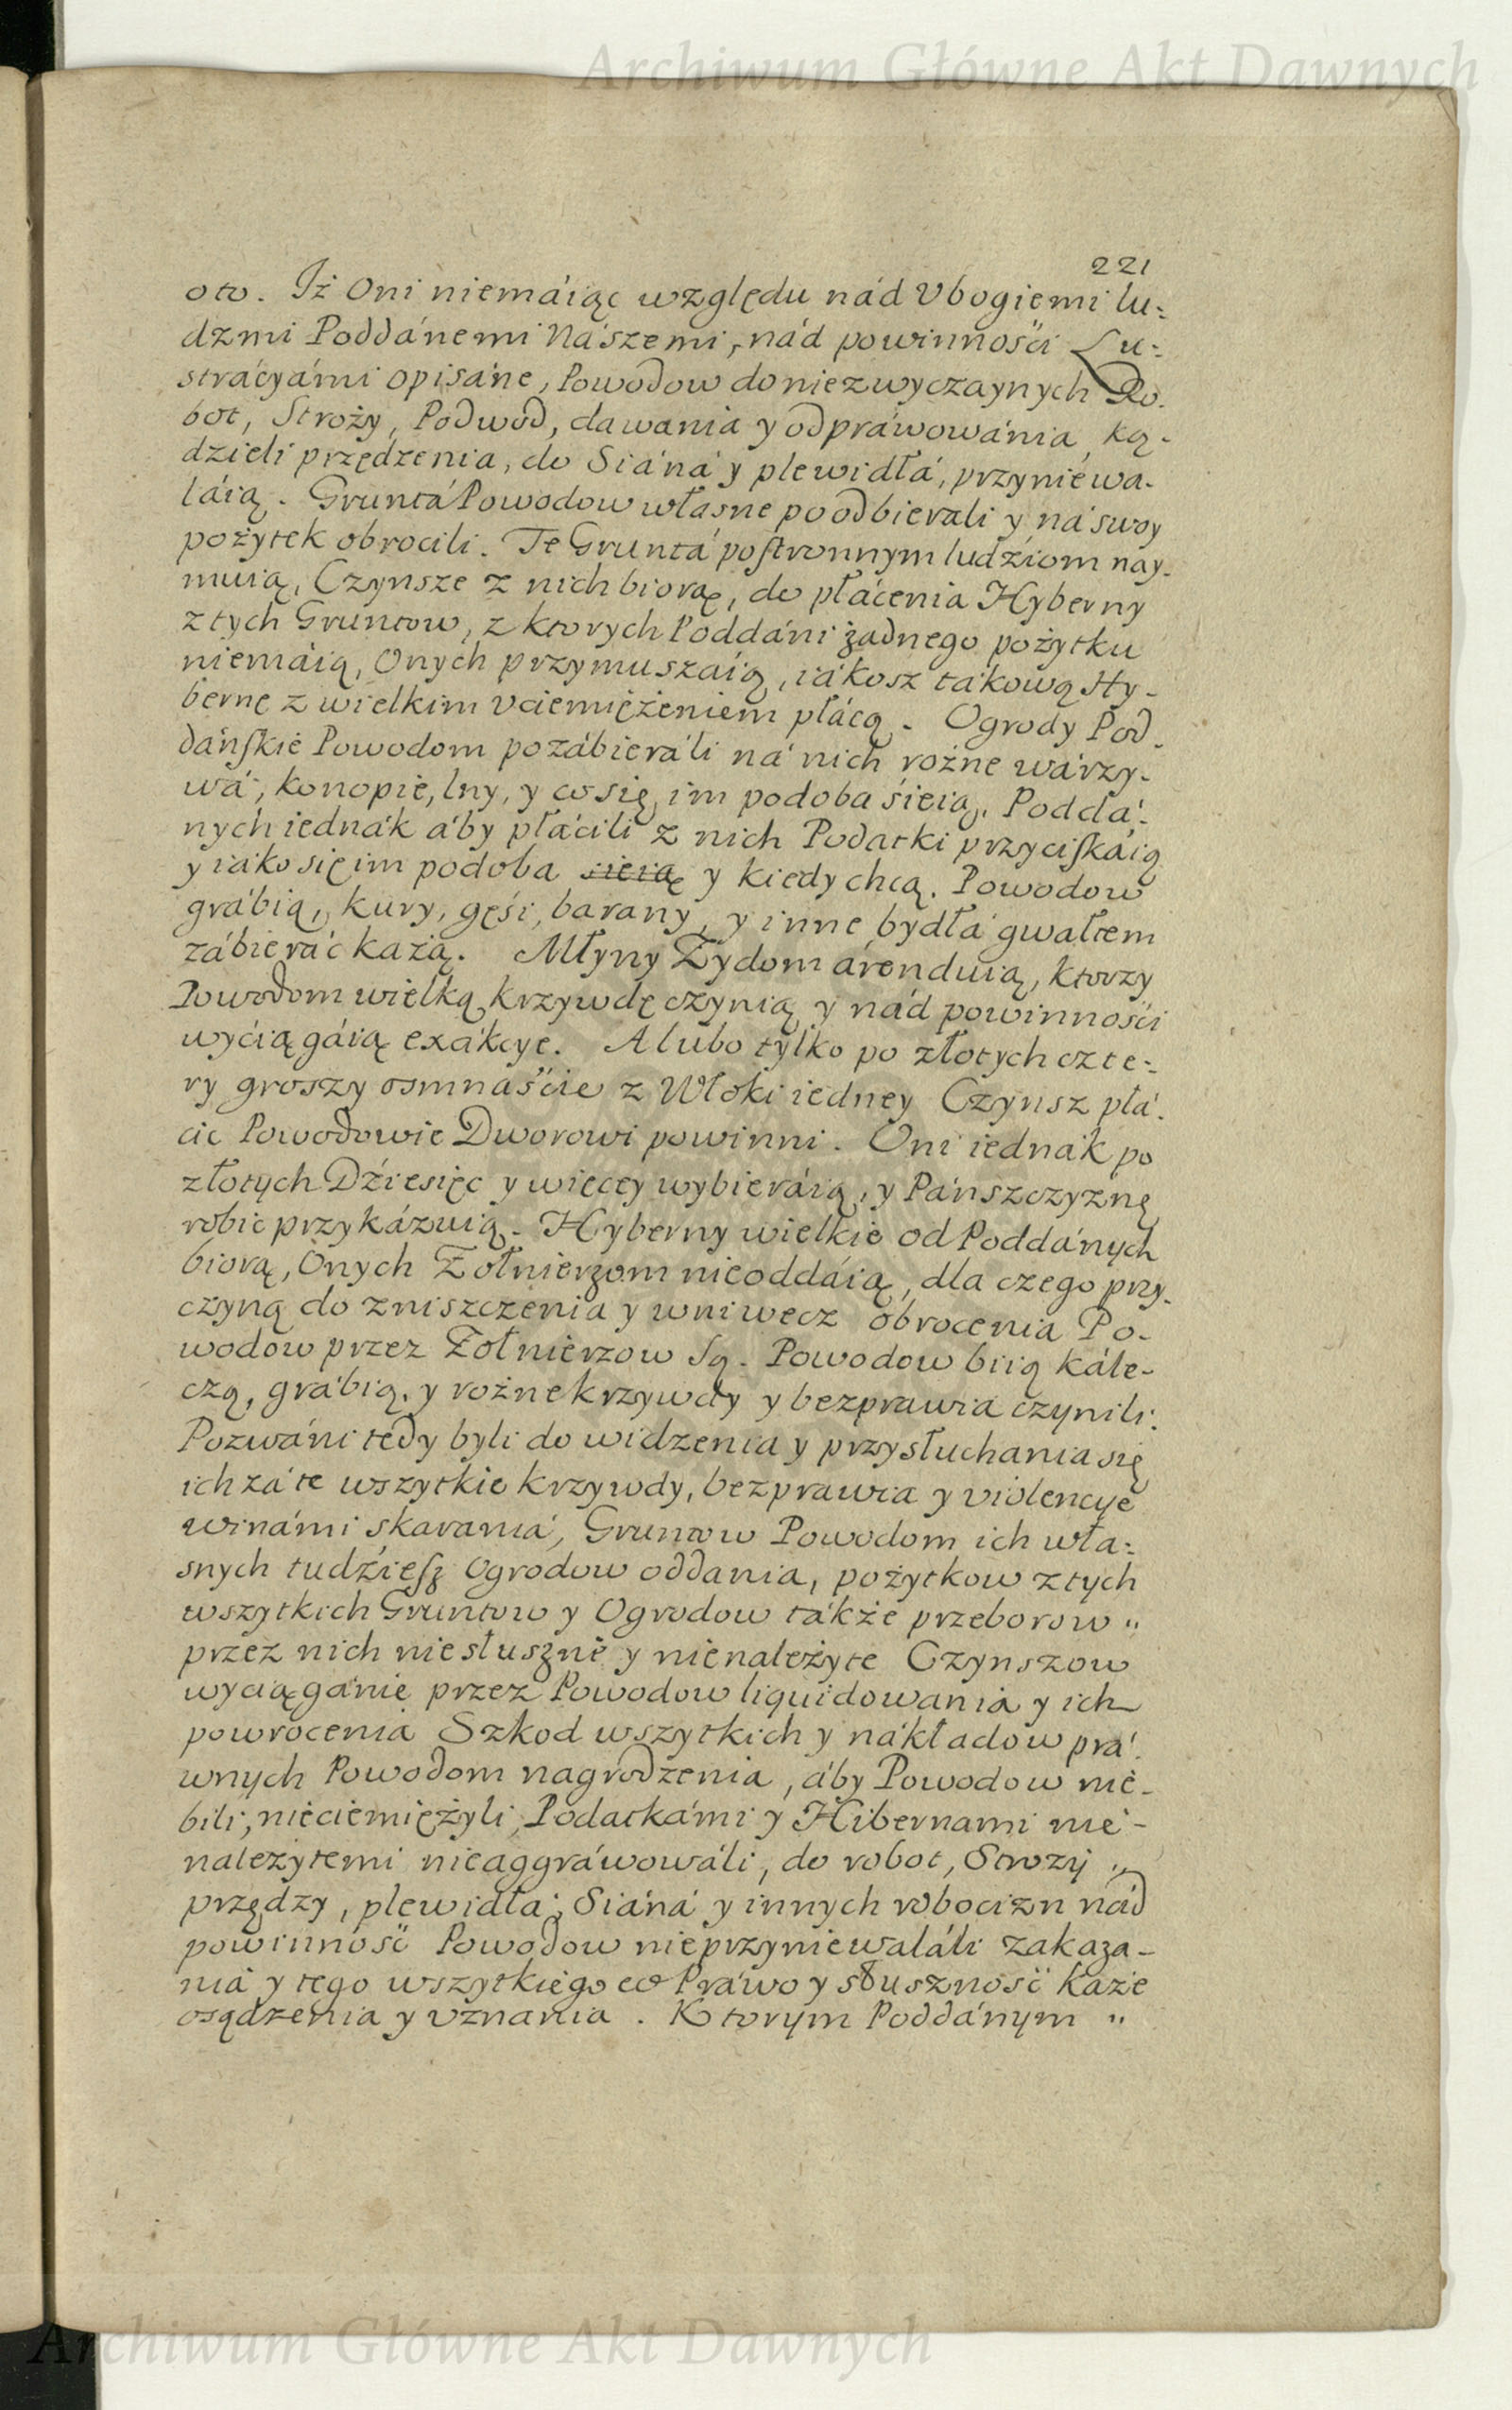 Archiwum Główne Akt Dawnych
221
oto. Iż Oni niemáiąc względu nád Vbogiemi lu:
dzmi Poddánemi Nászemi, nád powinnośći Lu:
strácyámi opisáne, Powodow do niezwyczaynych Ro.
bot, Stroży, Podwod, dawania y odpráwowánia, ką-
dzieli przędzenia, do Siáná y plewidłá, przyniewa-
láią. Gruntá Powodow własne poodbierali y ná swoy
pożytek obrocili. Te Gruntá postronnym ludźiom nay-
muią, Czynsze z nich biorą, do płácenia Hyberny
z tych Gruntow, z ktorych Poddáni żadnego pożytku
niemáią, Onych przymuszáią, iákosz tákową Hy-
bernę z wielkim vciemiężeniem płácą. Ogrody Pod-
dáńskie Powodom pozábieráli ná nich rożne wárzy-
wá, konopie, lny, y co się im podoba śieią. Poddá-
nych iednák áby płáćili z nich Podatki przyciskáią
y iáko się im podoba sieią y kiedy chcą. Powodow
grábią, kury, gęśi, barany, y inne bydłá gwałtem
zábieráć każą. Młyny Żydom árenduią, ktorzy
Powodom wielką krzywdę czynią y nád powinnośći
wyciągáią exákcye. A lubo tylko po złotych czte:
ry groszy osmnaśćie z Włoki iedney Czynsz płá-
cic Powodowie Dworowi powinni. Oni iednák po
złotych Dźiesięc y więcey wybieráią, y Pánszczyznę
robic przykázuią. Hyberny wielkie od Poddánych
biorą, Onych Żołnierzom nieoddáią, dla czego przy-
czyną do zniszczenia y wniwecz obrocenia Po-
wodow przez Żołnierzow są. Powodow biią kále-
czą, grábią, y rożne krzywdy y bezprawia czynili.
Pozwáni tedy byli do widzenia y przysłuchania się
ich zá te wszytkie krzywdy, bezprawia y violencye
winámi skaraniá, Gruntow Powodom ich wła:
snych tudźiesz Ogrodow oddania, pożytkow z tych
wszytkich Gruntow y Ogrodow tákże przeborow "
przez nich niesłusznie y nienależyte Czynszow
wyciągánie przez Powodow liquidowania y ich
powrocenia Szkod wszytkich y nákładow prá-
wnych Powodom nagrodzenia, áby Powodow nie-
bili, nieciemiężyli, Podatkámi y Hibernami nie-
należytemi nieaggráwowáli, do robot, Strozy "
przędzy, plewidłá, Siáná y innych robocizn nád
powinność Powodow nieprzyniewaláli zakaza-
niá y tego wszytkiego co Práwo y słuszność każe
osądzenia y vznania. Ktorym Poddánym "
Archiwum Główne Akt Dawnych